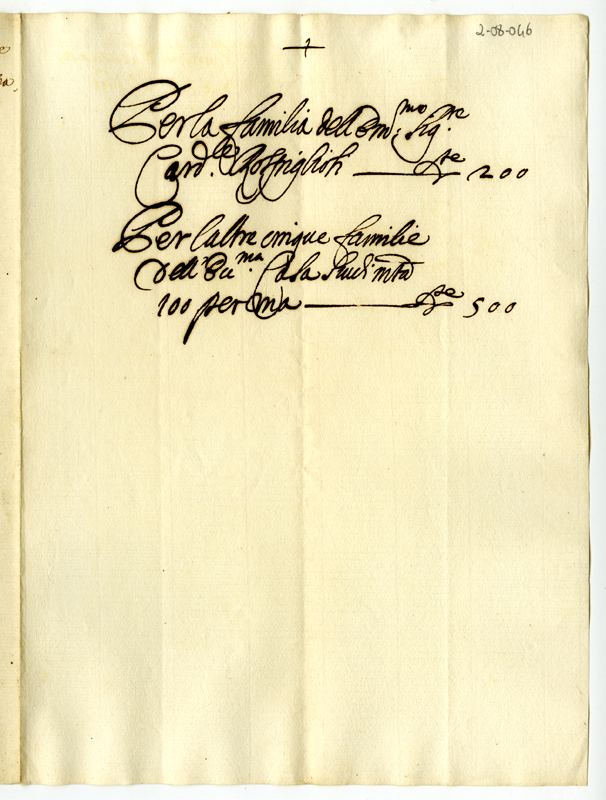 2-08-046
Per la familia dell Em:mo Sig.re
Card.le Rospigliosi
200
Per l'altre cinque familie
dell' Ecc.ma Casa
100 per una
500